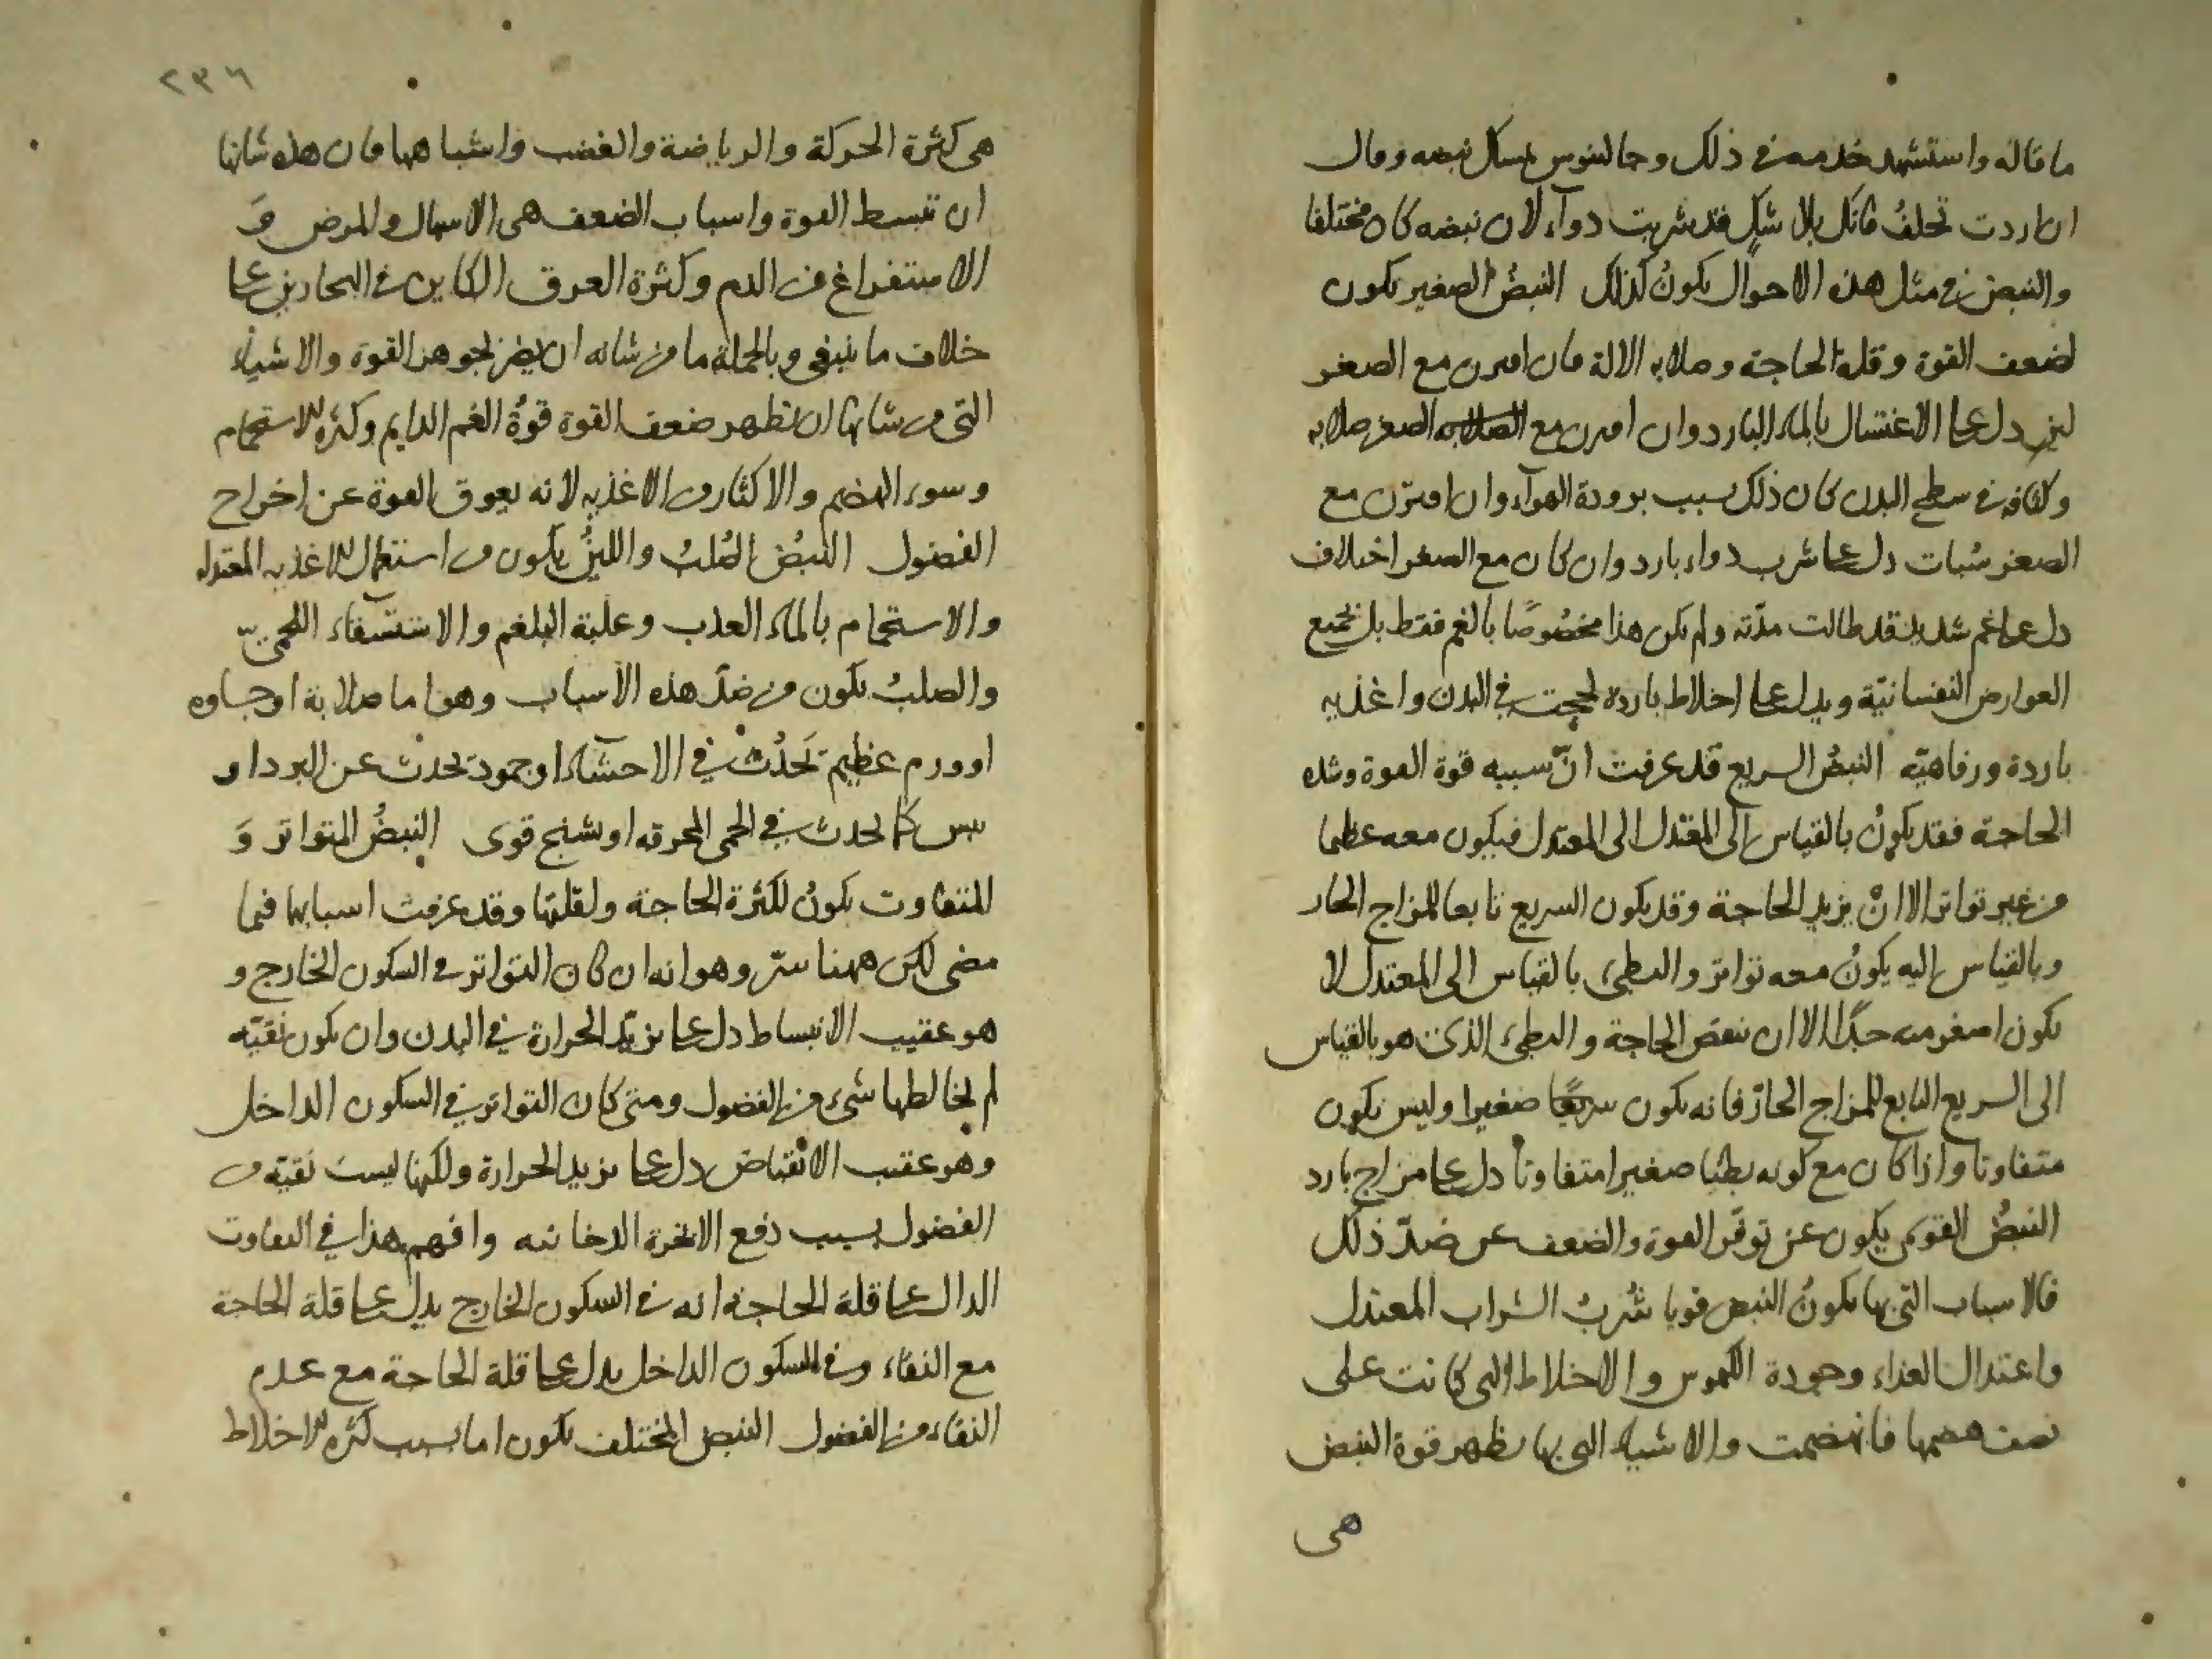 ما قاله واستشهد خدمه فى ذلك وجالينوس يمسك نبضه وقال
ان اردت تحلف فانك بلا شك قد شربت دوآء لان نبضه كان مختلفا
والنبض فى مثل هذه الاحوال يكونُ كذلك النبضُ الصغير يكون
لضعف القوة وقلة الحاجة وصلابه الالة فان اقترن مع الصغر
لين دل على الاغتسال بالماء البارد وان اقترن مع الصغر صلابه
وكثافه فى سطح البدن كان ذلك بسبب برودة الهوآء وان اقترن مع
الصغر سُبات دل على شرب دواء بارد وان كان مع الصغر اختلاف
دل على غم شديد قد طالت مدّته ولم يكن هذا مخصُوصًا بالغم فقط بل بجميع
العوارض النفسانيّة ويدل على اخلاط باردة لحجت فى البدن واغذيه
باردة ورفاهيّه النبضُ السريع قد عرفت انّ سببه قوة القوة وشده
الحاجة فقد يكونُ بالقياس الى المعتدل الى المعتدل فيكون معه عظيما
من غير تواتر الا انْ يزيد الحاجة وقد يكون السريع تابعا للمزاج الحار
وبالقياس اليه يكونُ معه تواتر والبطىء بالقياس الى المعتدل لا
يكون اصغر منه جدًا الا ان ينقص الحاجة والبطىء الذى هو بالقياس
الى السريع التابع للمزاج الحارّ فانه يكون سريعًا صغيرا وليس يكون
متفاوتا واذا كان مع كونه بطيًا صغيرا متفاوتا دل على مزاج بارد
النبضُ القوى يكون عن توفّر القوة والضعف عن ضدّ ذلك
فالاسباب التى بها يكونُ النبض قويا شُربُ الشراب المعتدل
واعتدال الغذاء وجودة الكيموس والاخلاط التى كانت على
نصف هضمها فانهضمت والاشياء التى بها يظهر قوة النبض
هى
٢٣٦
هى كثرة الحركة والرياضة والغضب واشباهها فان هذه شانها
ان تبسط القوة واسباب الضعف هى الاسهال والمرض وَ
الاستفراغ من الدم وكثرة العرق الكاين فى البحارين على
خلاف ما ينبغى وبالجملة ما من شانه ان يضر بجوهر القوة والاشياء
التى من شانها ان تظهر ضعف القوة قوةُ الغم الدايم وكثرة الاستحمام
وسوء الهضم والاكثار من الاغذيه لانه يعوق القوة عن اخراج
الفضول النبُضُ الصُلبُ واللينُ يكون من استعمال الاغذيه المعتدله
والاستحمام بالماء العذب وغلبة البلغم والاستسقاء اللحمىّ
والصلبُ يكون من ضدّ هذه الاسباب وهو اما صلابة او جساوه
او ورم عظيم تَحدُث فى الاحشاء او جمود تحدث عن البرد او
يبس كما تحدث فى الحمى المحرقه او تشنج قوى النبضُ المتواتر وَ
المتفاوت يكونُ لكثرة الحاجة ولقلتها وقد عرفت اسبابها فيما
مضى لكن ههنا سّر وهو انه ان كان التواتر فى السكون الخارج و
هو عقيب الانبساط دل على تزيّد الحرارة فى البدن وان يكون نقيّه
لم يخالطها شىء من الفضول ومتى كان التواتر فى السكون الداخل
وهو عقيب الانقباض دل على تزيد الحرارة ولكنها ليست نقيّه من
الفضول بسبب دفع الابخرة الدخانيه وافهم هذا فى التفاوت
الدال على قلة الحاجة انه فى السكون الخارج يدل على قلة الحاجة
مع النقاء وفى السكون الداخل يدل على قلة الحاجة مع عدم
النقاء من الفضول النبض المختلف يكون اما بسبب كثرة الاخلاط